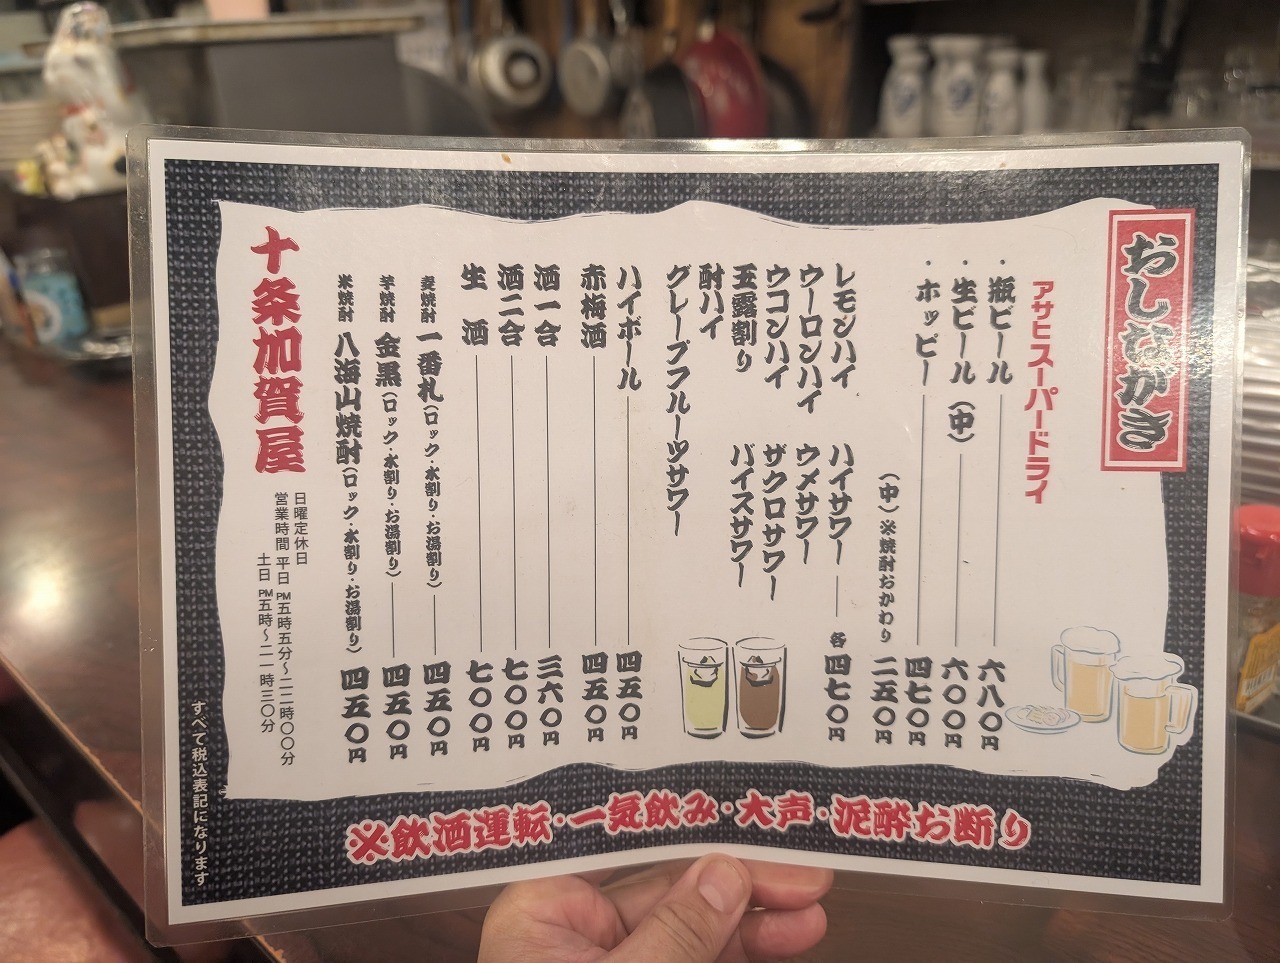 おしながき
アサヒスーパードライ
・瓶ビール 六八〇円
・生ビール（中） 六〇〇円
・ホッピー 四七〇円
（中）※焼酎おかわり 二五〇円
レモンハイ
ウーロンハイ
ウコンハイ
玉露割り
酎ハイ
グレープフルーツサワー
ハイサワー 各四七〇円
ウメサワー
ザクロサワー
バイスサワー
ハイボール 四五〇円
赤梅酒 四五〇円
酒一合 三六〇円
酒二合 七〇〇円
生酒 七〇〇円
麦焼酎 一番札（ロック・水割り・お湯割り） 四五〇円
芋焼酎 金黒（ロック・水割り・お湯割り） 四五〇円
米焼酎 八海山焼酎（ロック・水割り・お湯割り） 四五〇円
十条加賀屋
日曜定休日
営業時間 平日 PM五時五分～二二時〇〇分
土日 PM五時～二一時三〇分
すべて税込表記になります
※飲酒運転・一気飲み・大声・泥酔お断り